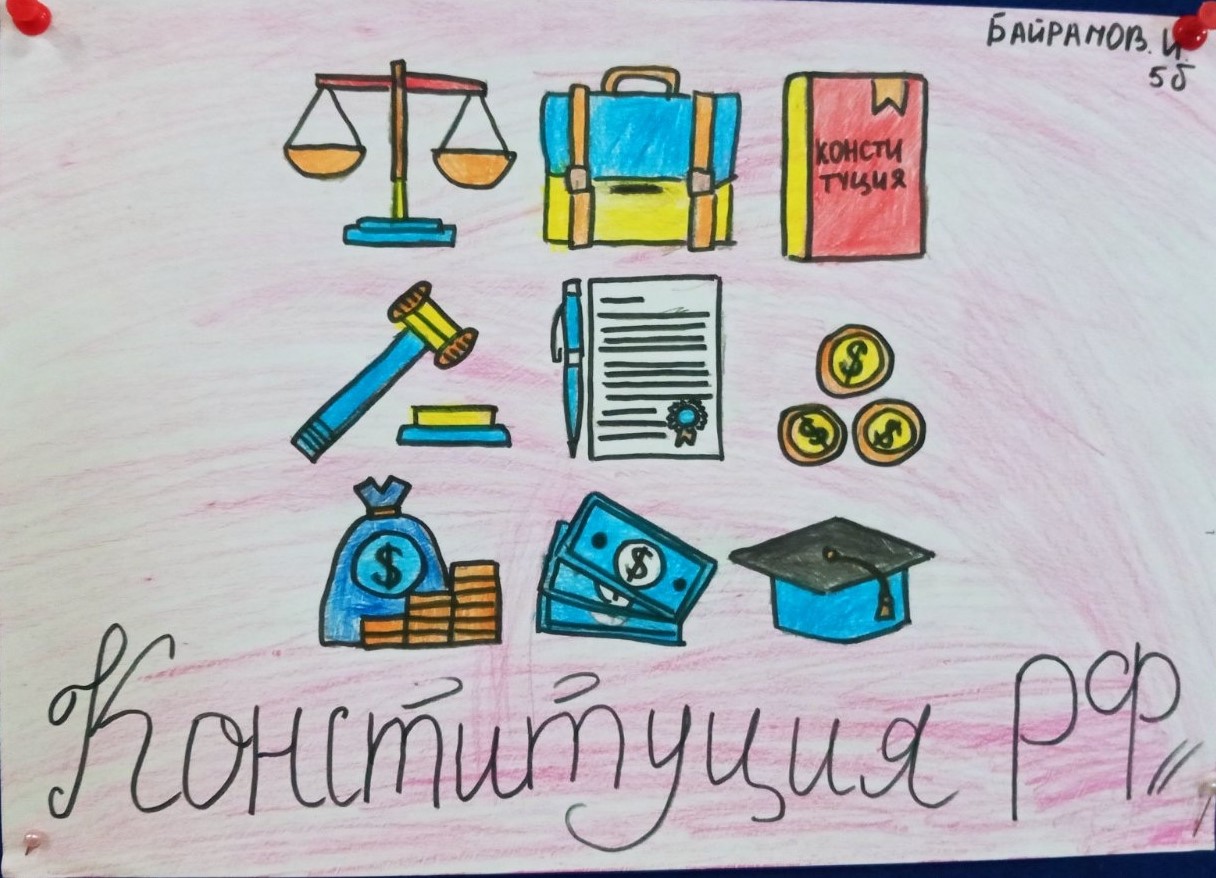 БАЙРАМОВ. И.
5б
КОНСТИ
ТУЦИЯ
$
$
$
$
$
Конституция РФ"